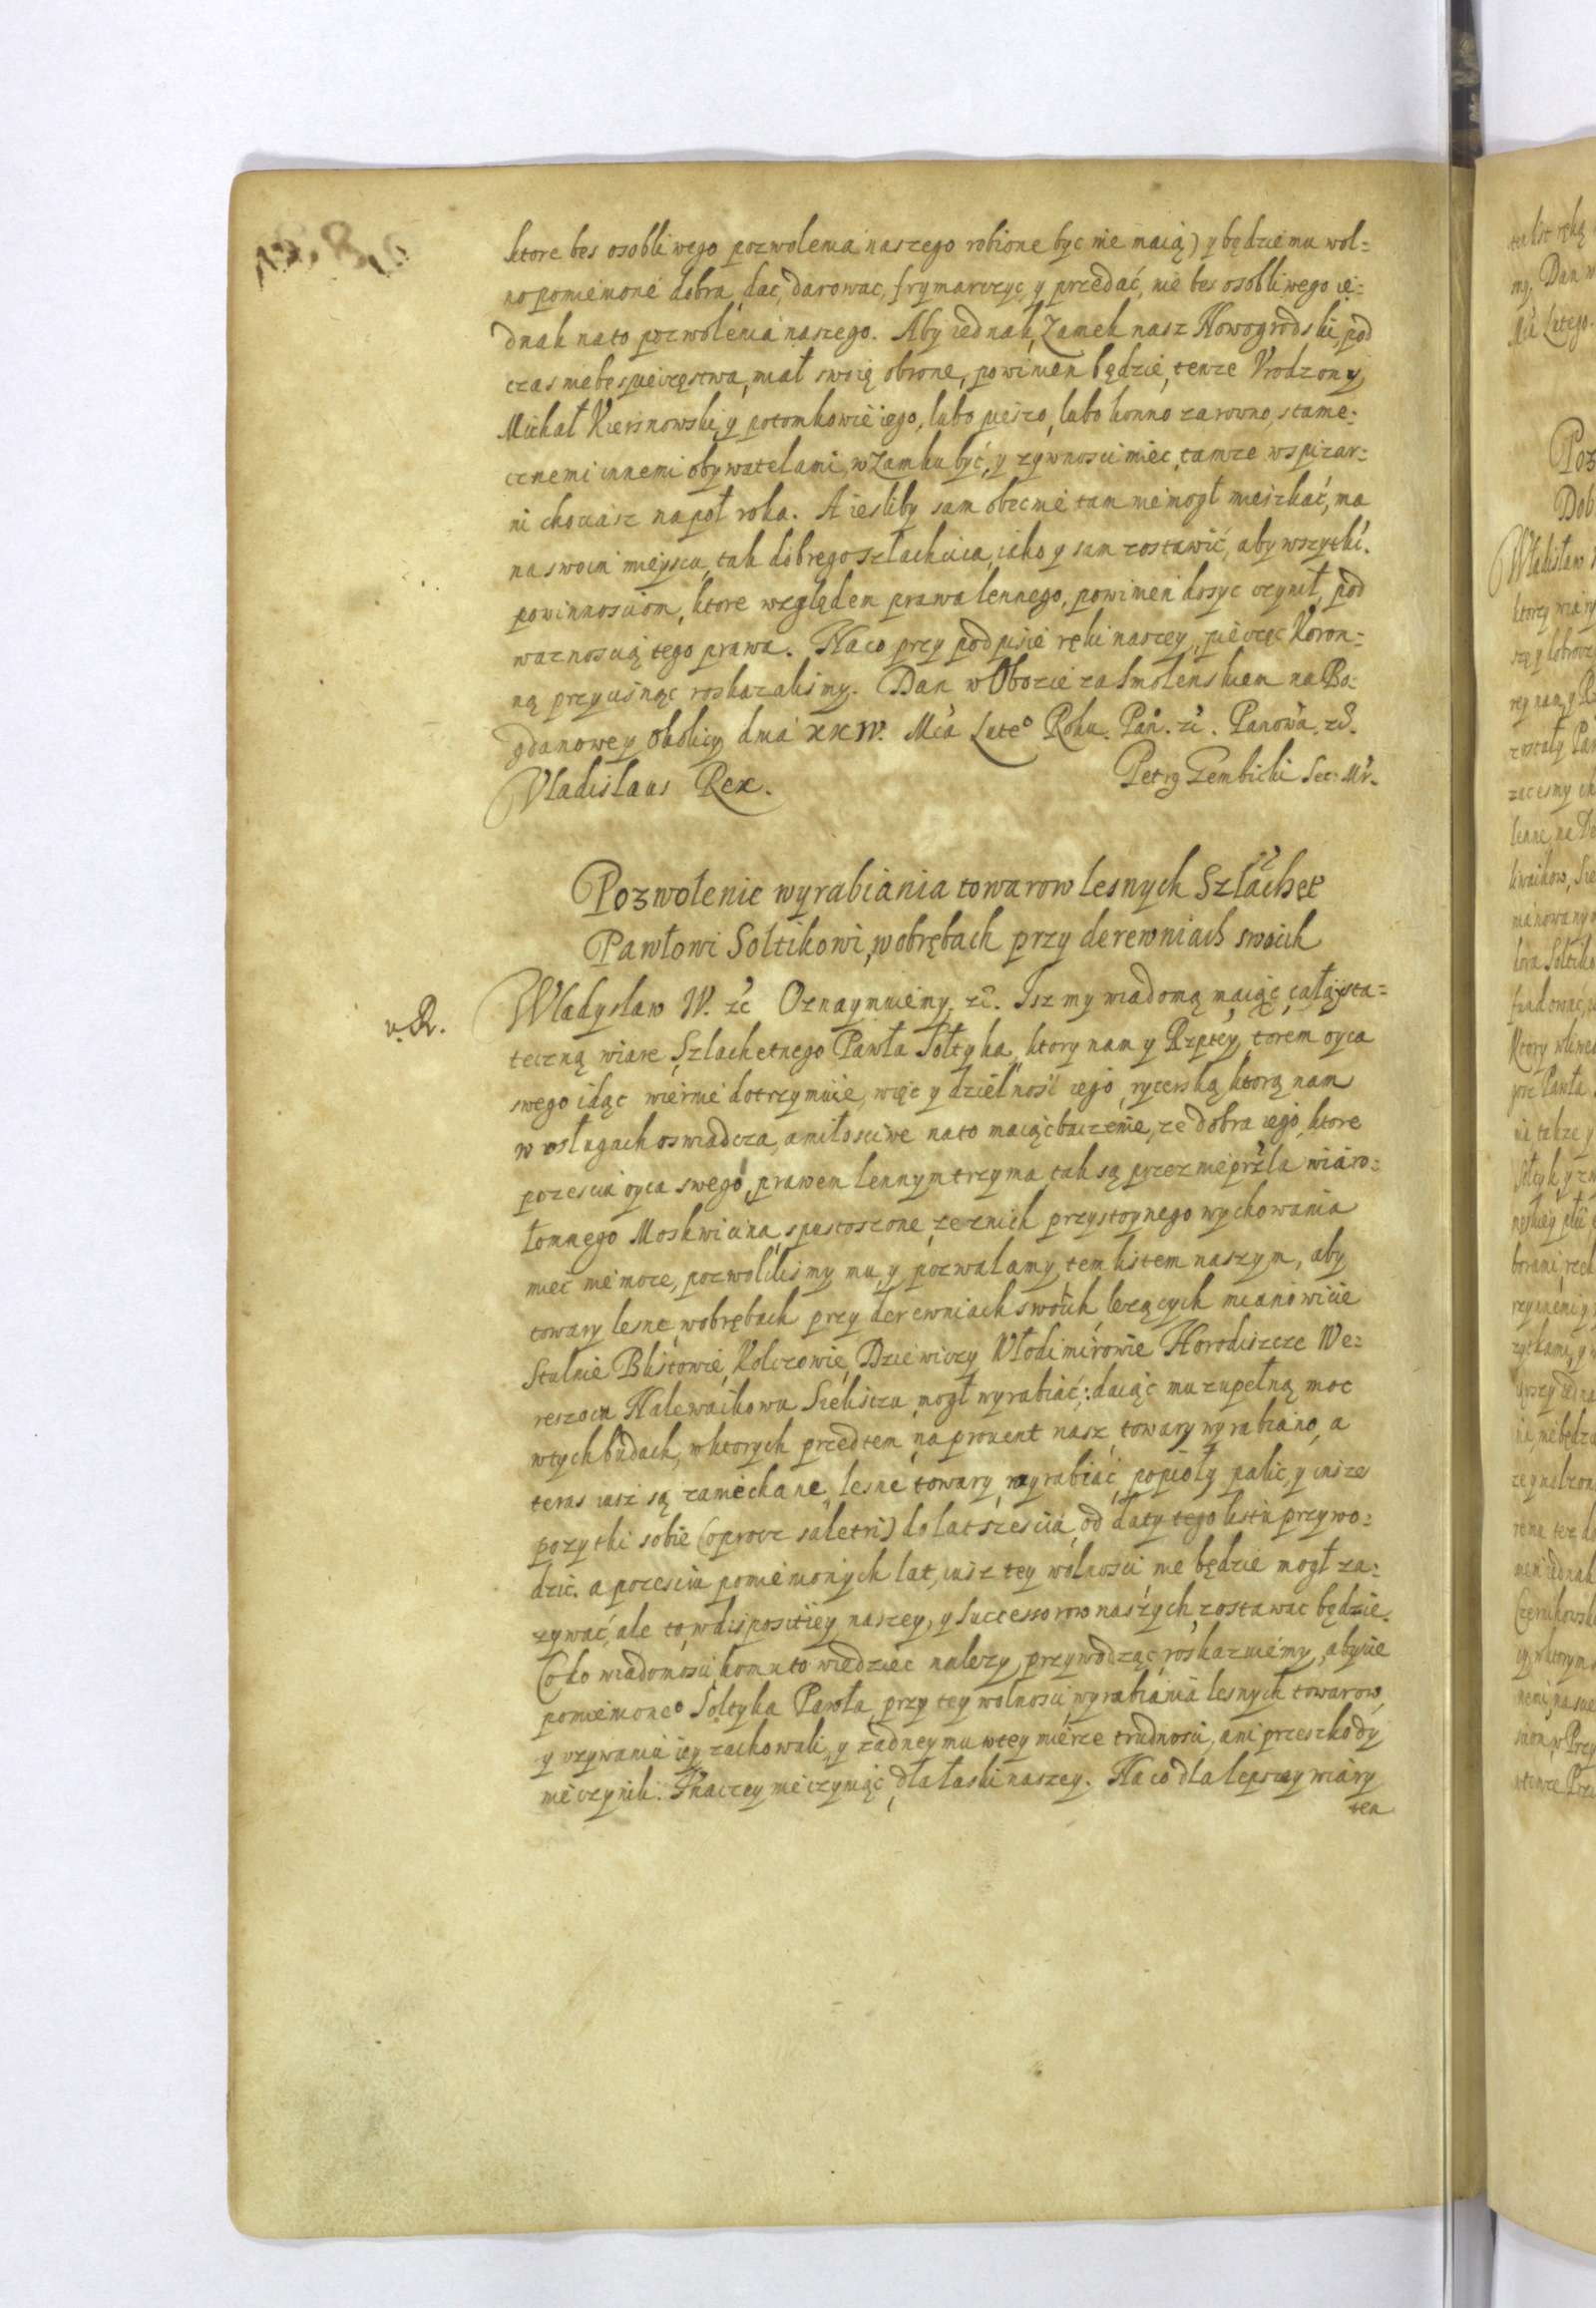 ktore bes osobliwego pozwolenia naszego robione byc nie maią) y będzie mu wol=
no pomienione dobra, dac, darowac, frymarczyc, y przedać, nie bes osobliwego ie=
dnak na to pozwolenia naszego. Aby iednak Zamek nasz Nowogrodski, pod
czas niebespieczęstwa, miał swoię obronę, powinien będzie, tenze Vrodzony
Michał Kiersnowski, y potomkowie iego, lubo pieszo, lubo konno zarowno, stame=
cznemi innemi obywatelami, w Zamku być, y zywnosci miec, tamze w spizar=
ni chociasz na poł roka. A iesliby sam obecnie tam nie mogł mieszkać, ma
na swoim mieyscu, tak dobrego szlachcica, iako y sam zostawić, aby wszytki
powinnosciom, ktore względem prawa lennego, powinien dosyc czynił, pod
waznoscią tego prawa. Na co przy podpisie ręki naszey, pieczęc Koron=
ną przycisnąc roskazalismy. Dan w Obozie za Smolenskiem na Bo=
gdanowey Okolicy dnia XXIV. Mca Luteo Roku. Pan. zc. Panowa. zc.
Vladislaus Rex.
Petrg Gembicki Sec: Mr.
Pozwolenie wyrabiania towarow lesnych Szlachet
Pawłowi Soltikowi, w obrębach przy derewniach swoich
v. R.
Wladyslaw IV. zc Oznaymuiemy. zc. Isz my wiadomą maiąc, całą, y sta=
teczną wiare Szlachetnego Pawła Sołtyka, ktory nam y Rzptey, torem oyca
swego idąc wiernie dotrzymuie, więc y dzielnosć iego, rycerską, ktorą nam
w usługach oswiadcza, a miłosciwe na to maiąc baczenie, ze dobra iego, ktore
po zesciu oyca swego, prawem lennym trzyma, tak są przez nieprzla wiaro=
łomnego Moskwicina, spustoszone, ze z nich przystoynego wychowania
mieć nie moze, pozwolilismy mu, y pozwalamy, tem listem naszym, aby
towary lesne, w obrębach przy derewniach swoich, lezących mianowicie
Stulnie Blistowie, Kolczowie, Dziewiczy Włodimirowie Horodiszcze We=
reszocu Nalewaikowu Sieliszczu, mogł wyrabiać; daiąc mu zupełną moc
w tych budach, w ktorych przedtem na prouent nasz, towary wyrabiano, a
teras iusz są zaniechane, lesne towary, wyrabiać, popioły palic, y insze
pozytki sobie (oprocz saletri) do lat szesciu, od daty tego listu przywo=
dzic. a po zesciu pomienionych lat, iusz tey wolnosci nie będzie mogł za=
zywać, ale to, w dispositiey naszey, y Successorow naszych, zostawac będzie.
Co do wiadomosci, komu to wiedziec nalezy, przywodząc, roskazuiemy, abyscie
pomienioneo Sołtyka Pawła, przy tey wolnosci, wyrabiania lesnych towarow,
y uzywaniu iey zachowali, y zadney mu w tey mierze trudnosci, ani przeszkody
nie czynili. Inaczey nie czyniąc, dla łaski naszey. Na co dla lepszey wiary
ten